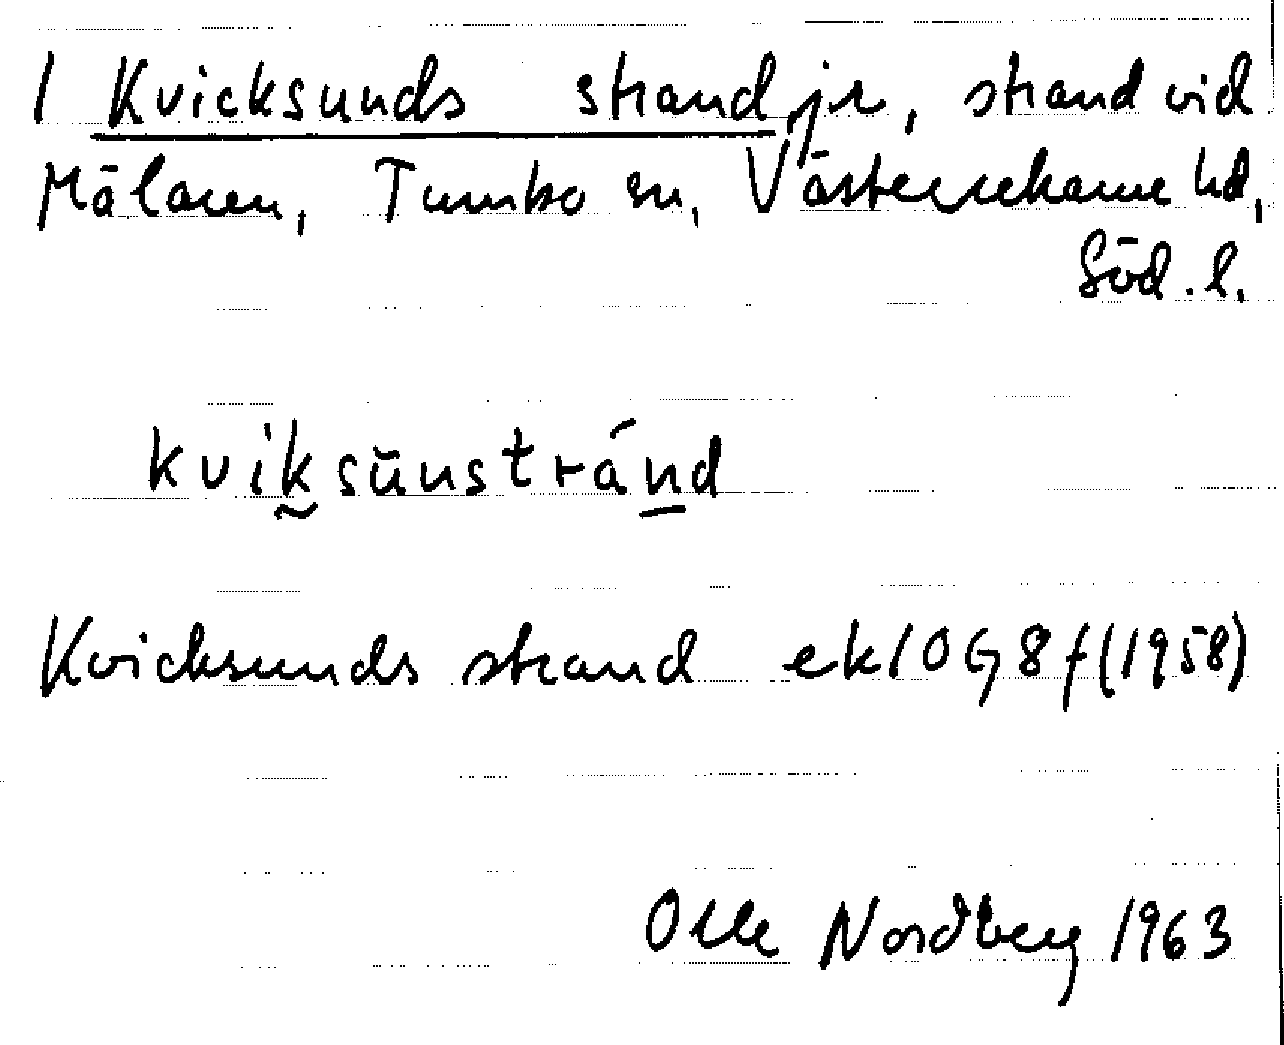 1 Kvicksunds strand, jr, strand vid
Mälaren, Tumbo sn, Västerrekarne hd,
Söd. l.
kviksŭnstránd
Kvicksunds strand ek 10G 8f (1958)
Olle Nordberg 1963